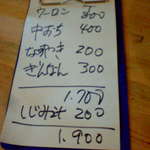 ウーロン 300
中おち 400
なめつき 200
ぎんなん 300
1.700
しじみそ 200
1.900